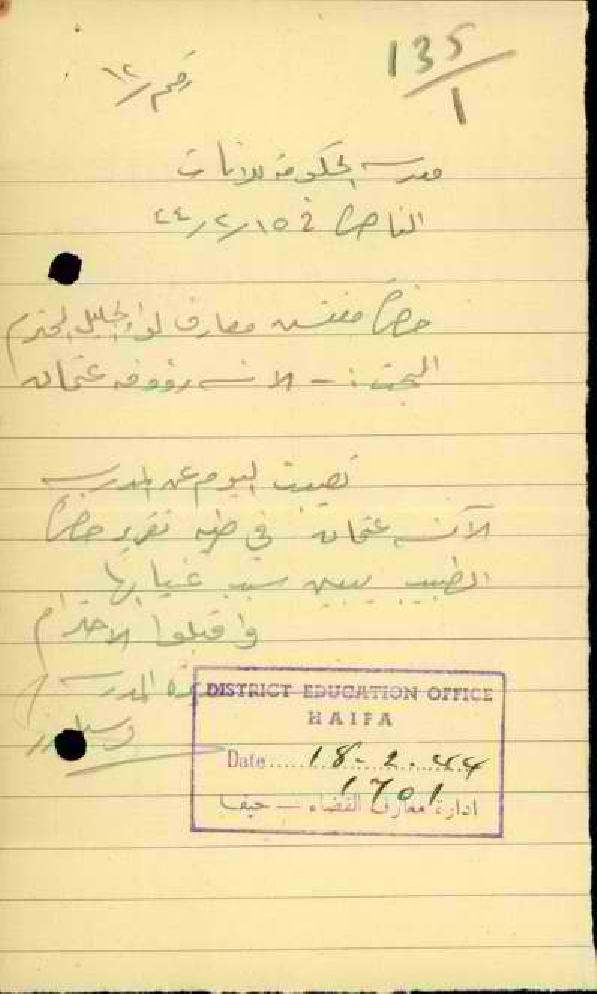 135/1
رقم ١٢/
مدرسة الحكومة للاناث
الناصرة في ١٥/٢/٤٤
حضرة مفتش معارف لواء الجليل المحترم
البحث :- الانسة رؤوفه عثمان
تغيبت اليوم عن المدرسة
الآنسة عثمان في طيه تقرير حضرة
الطبيب يبين سبب غيابها
واقبلوا الاحترام
المدرسة
DISTRICT EDUCATION OFFICE
HAIFA
Date 18-2-44
1701
ادارة معارف القضاء — حيفا